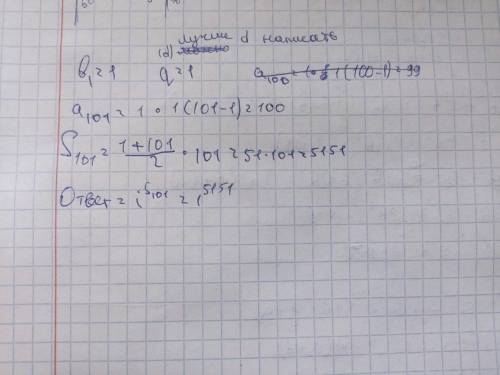 (d) лучше d написать
b₁=1 q=1 a₁₀₀=1·1(100-1)=99
a₁₀₁=1·1(101-1)=100
S₁₀₁=(1+101)/2·101=51·101=5151
Ответ=i^S₁₀₁=i^5151